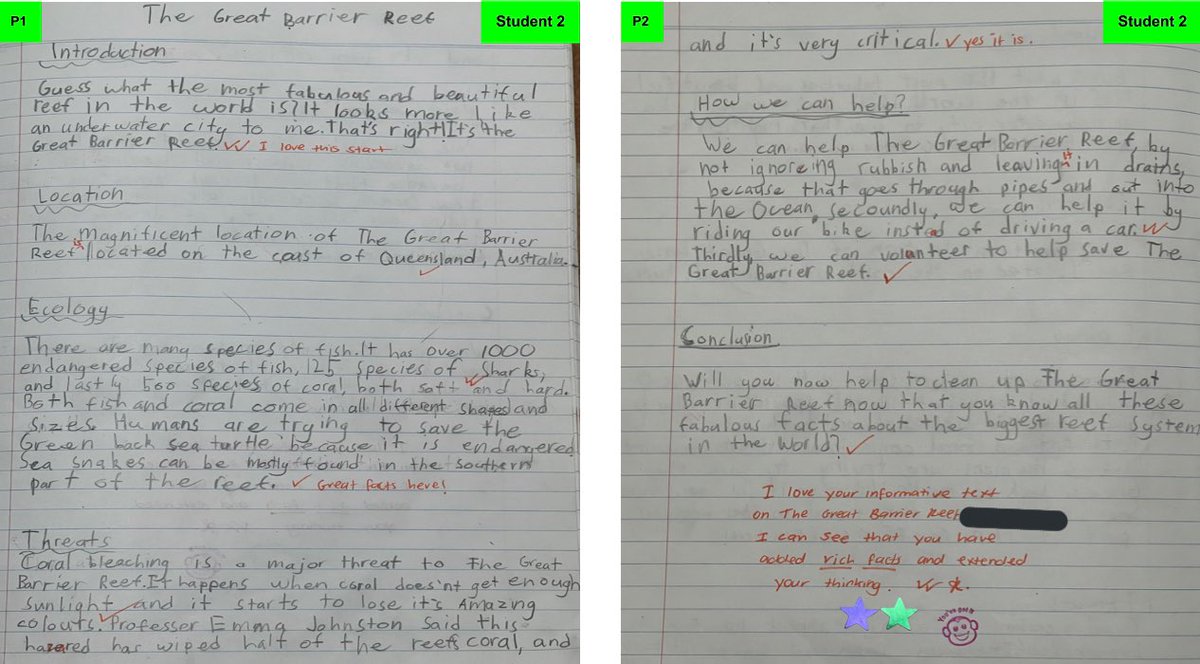 P1
Student 2
The Great Barrier Reef
Introduction
Guess what the most fabulous and beautiful
reef in the world is? It looks more like
an underwater city to me. That's right! It's the
Great Barrier Reef! I love this start
Location
The magnificent location of The Great Barrier
Reef is located on the coast of Queensland, Australia.
Ecology
There are many species of fish. It has over 1000
endangered species of fish, 125 species of sharks,
and lastly 500 species of coral, both soft and hard.
Both fish and coral come in all different shapes and
sizes Humans are trying to save the
Green back sea turtle because it is endangered
Sea snakes can be mostly found in the southern
part of the reef. Great facts here!
Threats
Coral bleaching is a major threat to The Great
Barrier Reef. It happens when coral does'nt get enough
sunlight and it starts to lose it's Amazing
colours. Professor Emma Johnston said this
hazered has wiped half of the reefs coral, and
P2
Student 2
and it's very critical. yes it is.
How we can help?
We can help The Great Barrier Reef, by
not ignoreing rubbish and leaving it in drains,
because that goes through pipes and out into
the Ocean, secoundly, we can help it by
riding our bike insted of driving a car.
Thirdly, we can volanteer to help save The
Great Barrier Reef.
Conclusion
Will you now help to clean up The Great
Barrier Reef now that you know all these
fabulous facts about the biggest reef system
in the world?
I love your informative text
on The Great Barrier Reef
I can see that you have
added rich facts and extended
your thinking.
You're on it